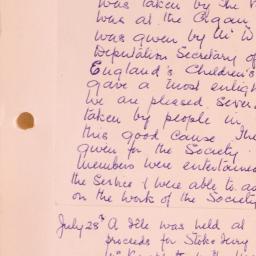 was taken by the
was at the Organ
was given by Mr W
Deputation Secretary of
England's Children's
gave a most enlight
we are pleased seve
taken by people in
this good cause. The
given for the Society.
members were entertained
the Service & were able to as
on the work of the Society
July 28th A Fête was held at
proceeds for Stoke